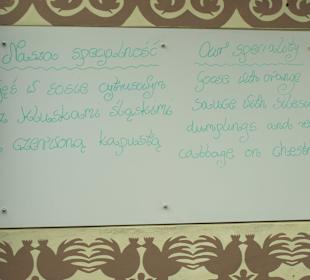 Nasza specjalność
gęś w sosie cytrusowym
z kluskami śląskimi
czerwoną kapustą
Our speciality
Goose with orange
sauce with silesi
dumplings and
cabbage on chestn